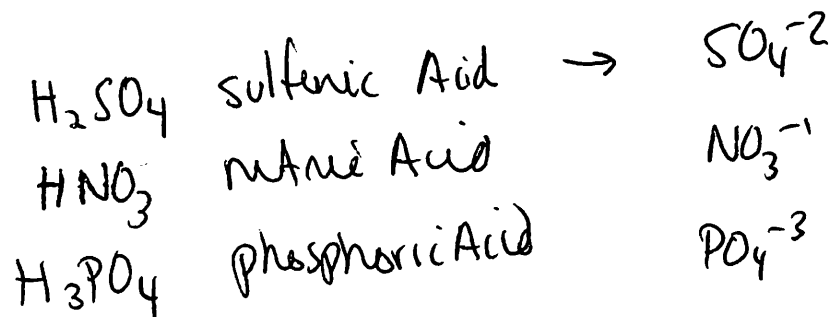 H₂SO₄ sulfuric Acid → SO₄⁻²
HNO₃ nitric Acid NO₃⁻¹
H₃PO₄ phosphoric Acid PO₄⁻³